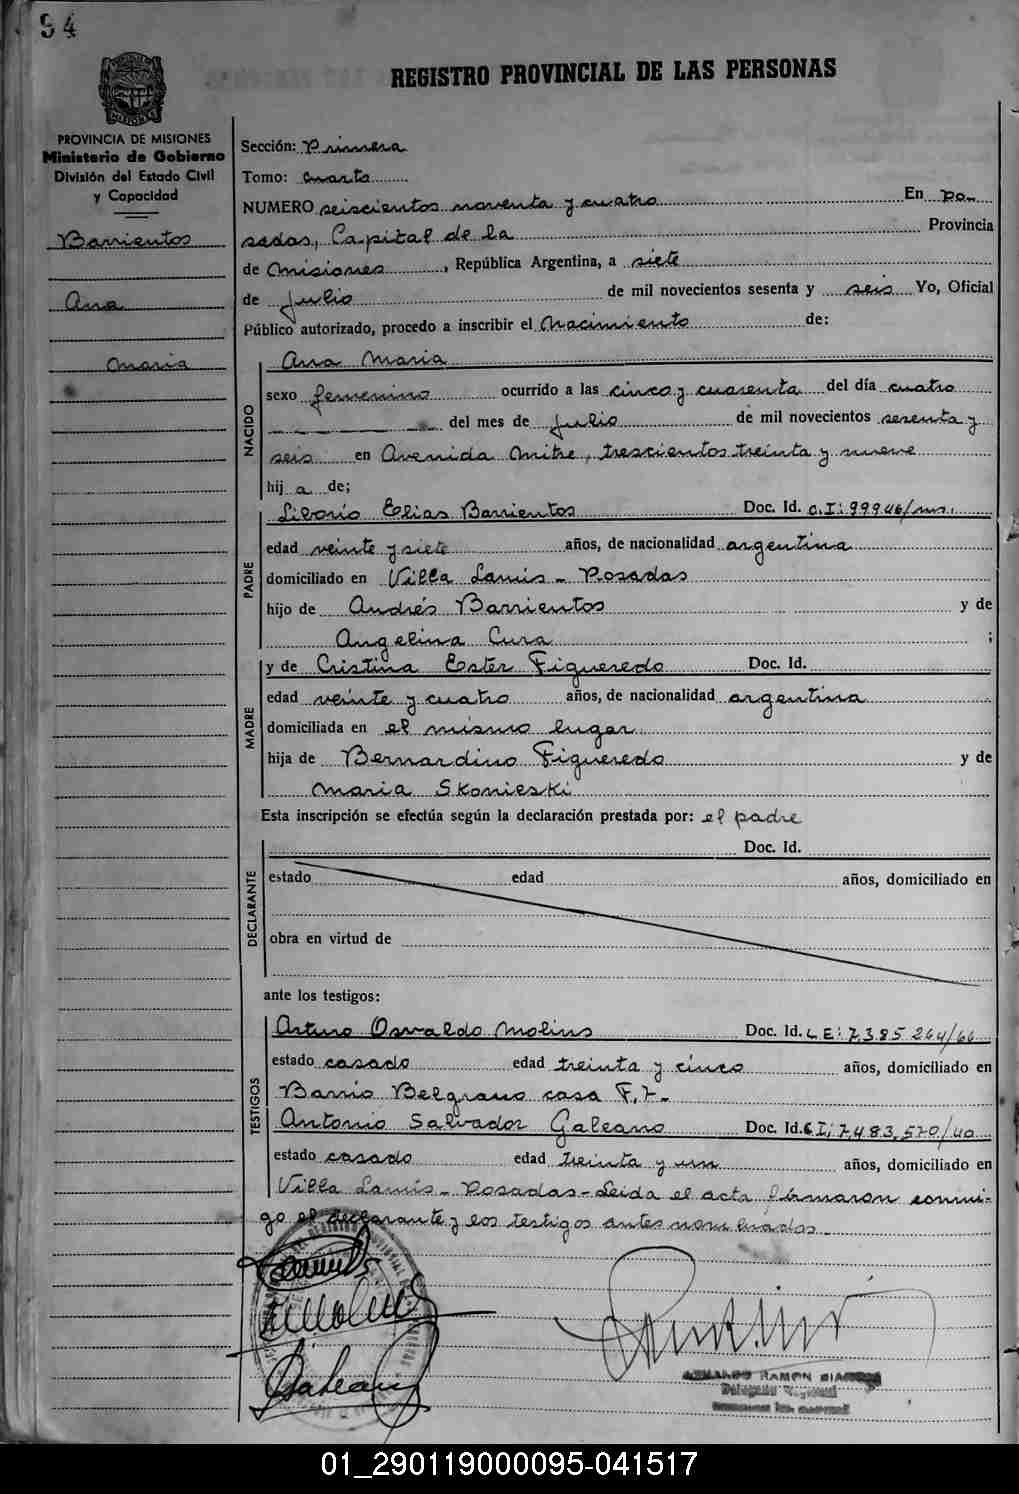 94
REGISTRO PROVINCIAL DE LAS PERSONAS
PROVINCIA DE MISIONES
Ministerio de Gobierno
División del Estado Civil
y Capacidad
Barrientos
Ana
Maria
Sección: Primera
Tomo: cuarto
NUMERO seiscientos noventa y cuatro En Po-
sadas, Capital de la Provincia
de Misiones, República Argentina, a siete
de Julio de mil novecientos sesenta y seis Yo, Oficial
Público autorizado, procedo a inscribir el nacimiento de:
NACIDO
Ana Maria
sexo femenino ocurrido a las cinco y cuarenta del día cuatro
del mes de Julio de mil novecientos sesenta y
seis en Avenida Mitre, trescientos treinta y nueve
hij a de;
PADRE
Liborio Elias Barrientos Doc. Id. C.I: 99946/ms.
edad veinte y siete años, de nacionalidad argentina
domiciliado en Villa Lanús - Posadas
hijo de Andrés Barrientos y de
Angelina Cura ;
MADRE
y de Cristina Ester Figueredo Doc. Id.
edad veinte y cuatro años, de nacionalidad argentina
domiciliada en el mismo lugar
hija de Bernardino Figueredo y de
Maria Skonieski
Esta inscripción se efectúa según la declaración prestada por: el padre
DECLARANTE
Doc. Id.
estado edad años, domiciliado en
obra en virtud de
ante los testigos:
TESTIGOS
Arturo Osvaldo Molins Doc. Id. L E: 7.385 264/66
estado casado edad treinta y cinco años, domiciliado en
Barrio Belgrano casa F.7-
Antonio Salvador Galeano Doc. Id. C I; 7,483,570/40
estado casado edad treinta y un años, domiciliado en
Villa Lanús - Posadas - Leida el acta firmaron conmi-
go el declarante y los testigos antes nombrados -
RAMON
Delegado
01_290119000095-041517